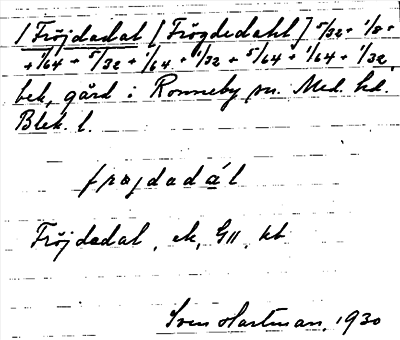 / Fröjdadal [Frögdedahl] 5/32 + 1/8 +
+ 1/64 + 5/32 + 1/64 + 1/32 + 5/64 + 1/64 + 1/32,
bek, gård i Ronneby sn. Med. hd.
Blek. l.
frøjdadál
Fröjdadal, ek, GII, kb
Sven Hartman, 1930